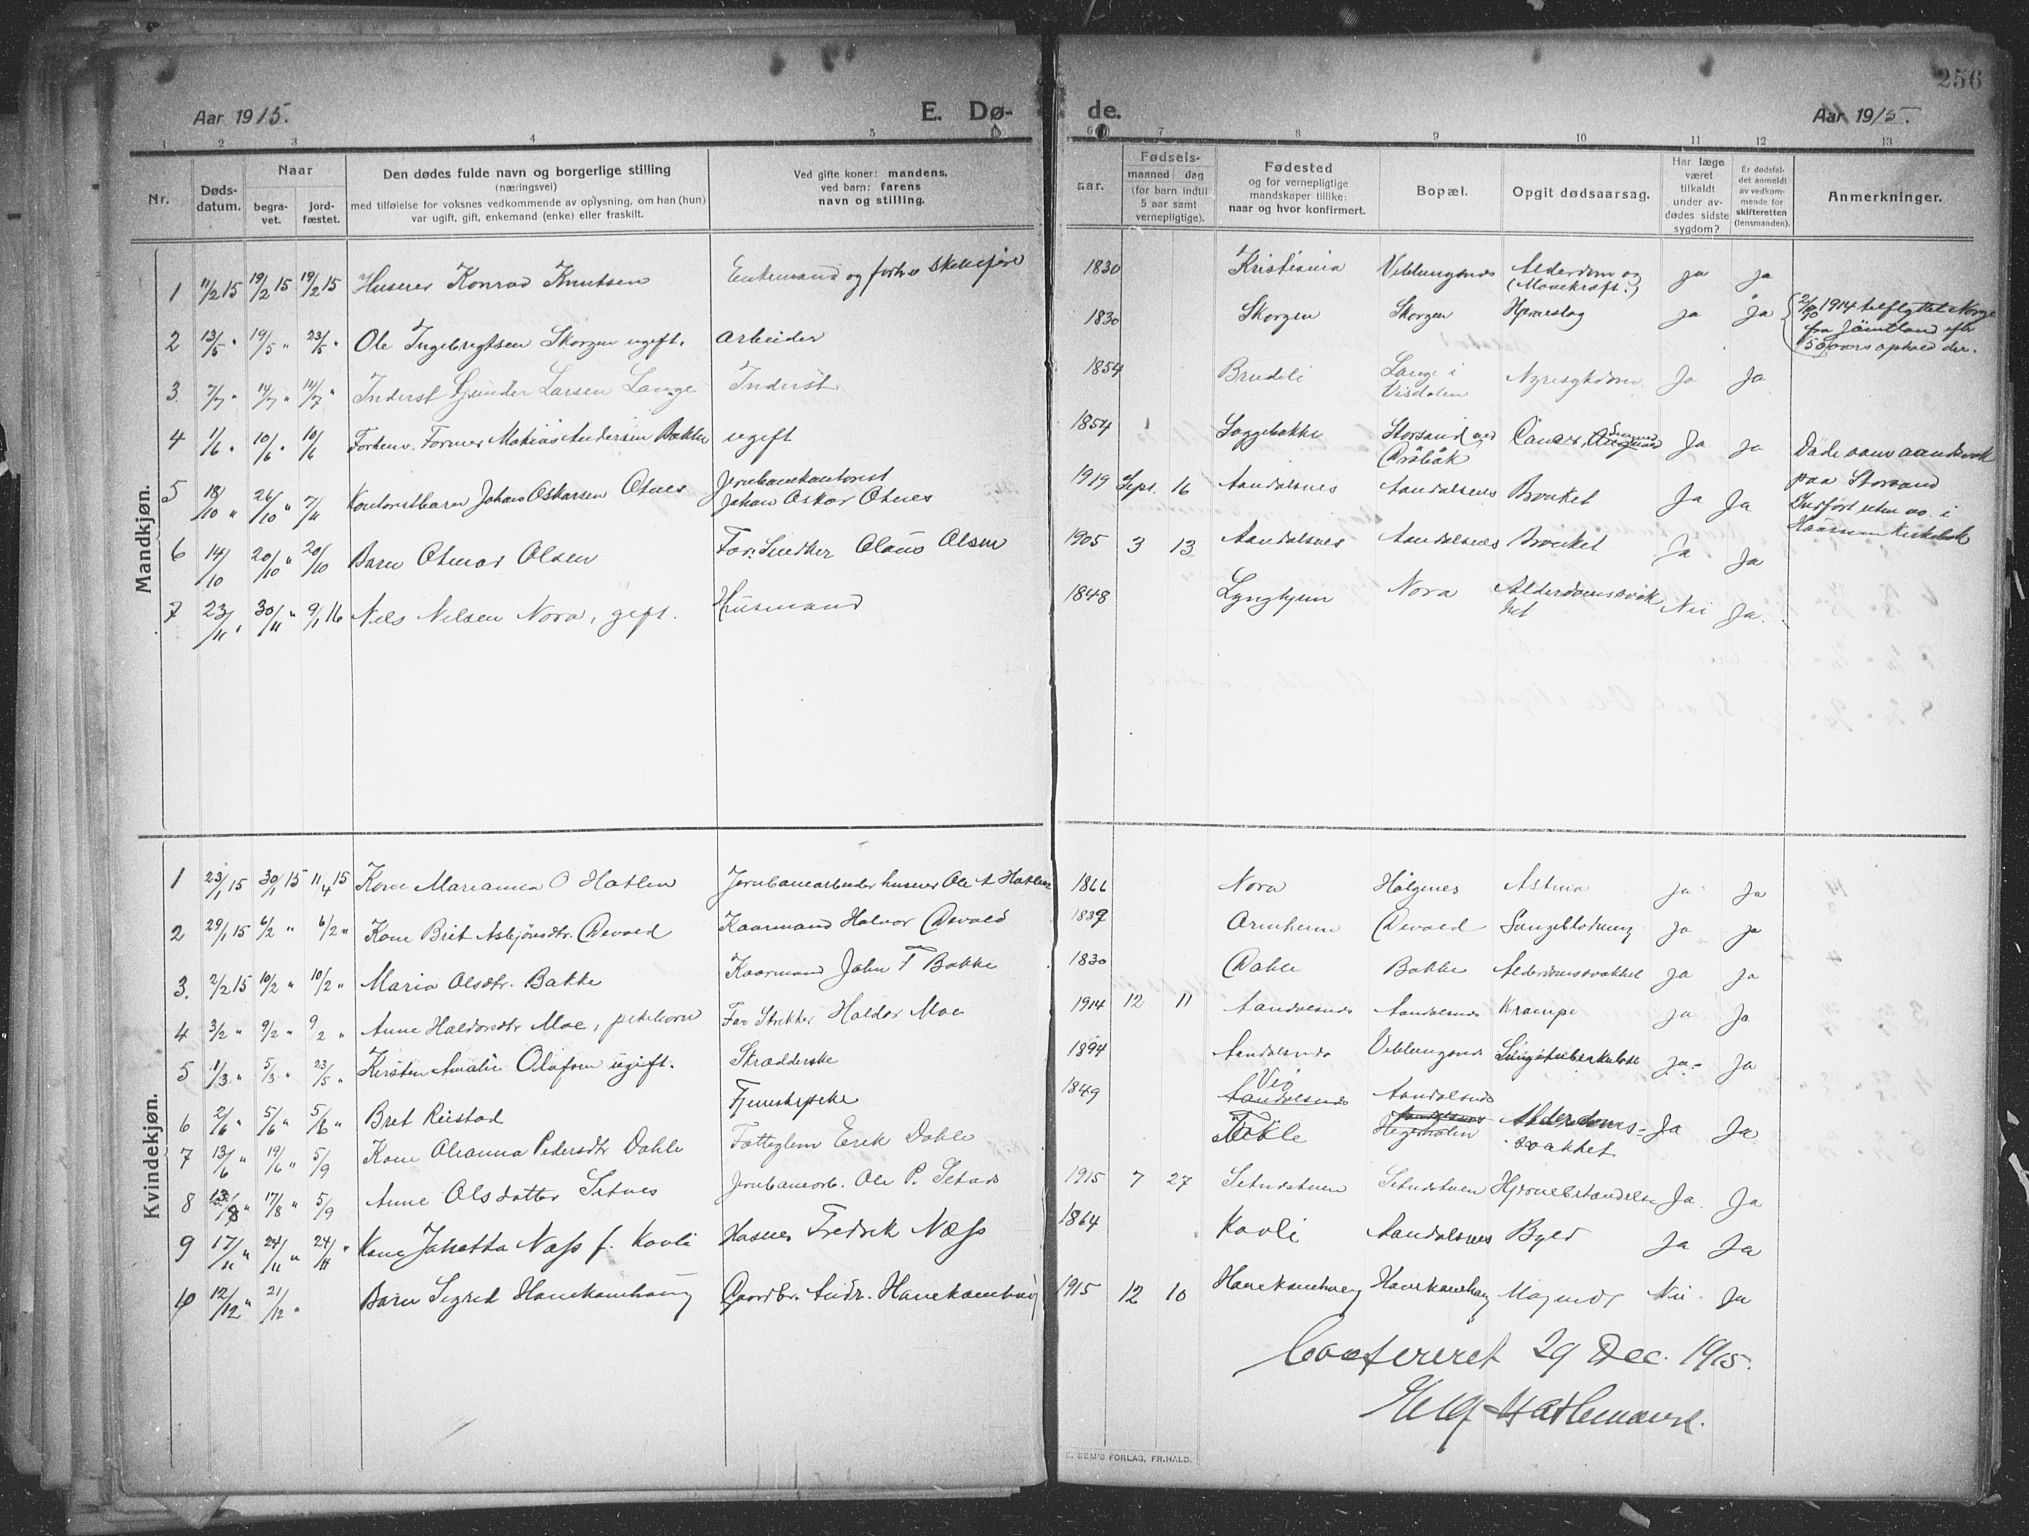 256
Aar 1915.
E. Dø-
de.
Aar 1915.
1 2 3 4 5 6 7 8 9 10 11 12 13
Nr.
Døds-
datum.
Naar
begra-
vet.
jord-
fæstet.
Den dødes fulde navn og borgerlige stilling
(næringsvei)
med tilføielse for voksnes vedkommende av oplysning, om han (hun)
var ugift, gift, enkemand (enke) eller fraskilt.
Ved gifte koner: mandens,
ved barn: farens
navn og stilling.
aar.
Fødsels-
maaned dag
(for barn indtil
5 aar samt
vernepligtige).
Fødested
og for vernepligtige
mandskaper tillike:
naar og hvor konfirmert.
Bopæl.
Opgit dødsaarsag.
Har læge
været
tilkaldt
under av-
dødes sidste
sygdom?
Er dødsfal-
det anmeldt
av vedkom-
mende for
skifteretten
(lensmanden).
Anmerkninger.
Mandkjøn.
1 11/2 15 19/2 15 19/2 15 Huseier Konrad Knutsen Enkemand og forhv 1830 Kristiania Veblungsnes Alderdom og ja ja
2 13/5 " 19/5 " 23/5 " Ole Ingebrigtsen Skorgen ugift. arbeider 1830 Skorgen Skorgen Hjerneslag ja ja 1914 tilflyttet Norge
fra Jämtland efter
50 aars ophold der.
3 7/7 " 14/7 " 14/7 " Inderst Larsen Lange Inderst 1854 Brudeli Lange i
Visdalen Nyresygdom Ja Ja
4 1/6 " 10/6 " 10/6 Forhenv. Former Matias Andersen Bakke ugift 1854 Soggebakke Storsand ved
Drøbak Cancer Ja ja Døde som aandssvak
paa Storsand
Indført uten no. i
5 18/10 " 26/10 " 7/11 Kontoristbarn Johan Oskarsen Otnes Jernbanekontorist
Johan Oskar Otnes 1919 Sept. 16 Aandalsnes Aandalsnes Bronkit Ja Ja
6 14/10 20/10 " 20/10 Barn Otmar Olsen Far: Snedker Olaus Olsen 1905 3 13 Aandalsnes Aandalsnæs Bronkit Ja Ja
7 23/11 " 30/11 " 9/1 16 Nils Nilsen Nora, gift. Husmand 1848 Lyngheim Nora Alderdomssvak
het Nei Ja.
Kvindekjøn.
1 23/1 15 30/1 15 11/4 15 Kone Marianna O Hatlen Jernbanearbeider huseier Ole A Hatlen 1866 Nora Holgenes Astma ja ja
2 29/1 15 6/2 " 6/2 " Kone Brit Asbjønsdtr. Devold Kaarmand Halvor Devold 1839 Arnheim Devold Lungeblødning ja ja
3. 2/2 15 10/2 " 10/2 " Maria Olsdtr. Bakke Kaarmand John T Bakke 1830 Dahle Bakke Alderdomssvakhet ja ja
4 3/2 " 9/2 " 9/2 " Anne Haldorsdtr Moe, pikebarn Far Haldor Moe 1914 12 11 Aandalsnes Aandalsnes Krampe ja Ja
5 1/3 " 5/3 " 23/5 " Kirsten Amalie Olafsen ugift. Skrædderske 1894 Aandalsnes Veblungsnes Lungetuberkulose ja Ja
6 2/6 " 5/6 " 5/6 " Bret Reistad 1849 Aandalsnes
7 13/6 19/6 " 5/9 Kone Olianna Pedersdtr Dahle Fattiglem Erik Dahle Alderdoms-
svakhet Ja Ja
8 13/8 " 17/8 " 5/9 Anne Olsdatter Setnes Jernbanearb. Ole P. Setnes 1915 7 27 Setnestuen Setnestuen Hjernebetændelse Ja Ja
9 17/11 " 24/11 " 24/11 " Kone Johatta Næss f. Kavli Huseier Fredrik Næss 1864 Kavli Aandalsnes Byld Ja Ja
10 12/12 " 21/12 " Barn Sigrid Hanekamhaug Gaardbr. Andr. Hanekamhaug 1915 12 10 Hanekamhaug Hanekamhaug Nei Ja
Confereret 29 Dec. 1915.
E. SEM'S FORLAG, FR.HALD.